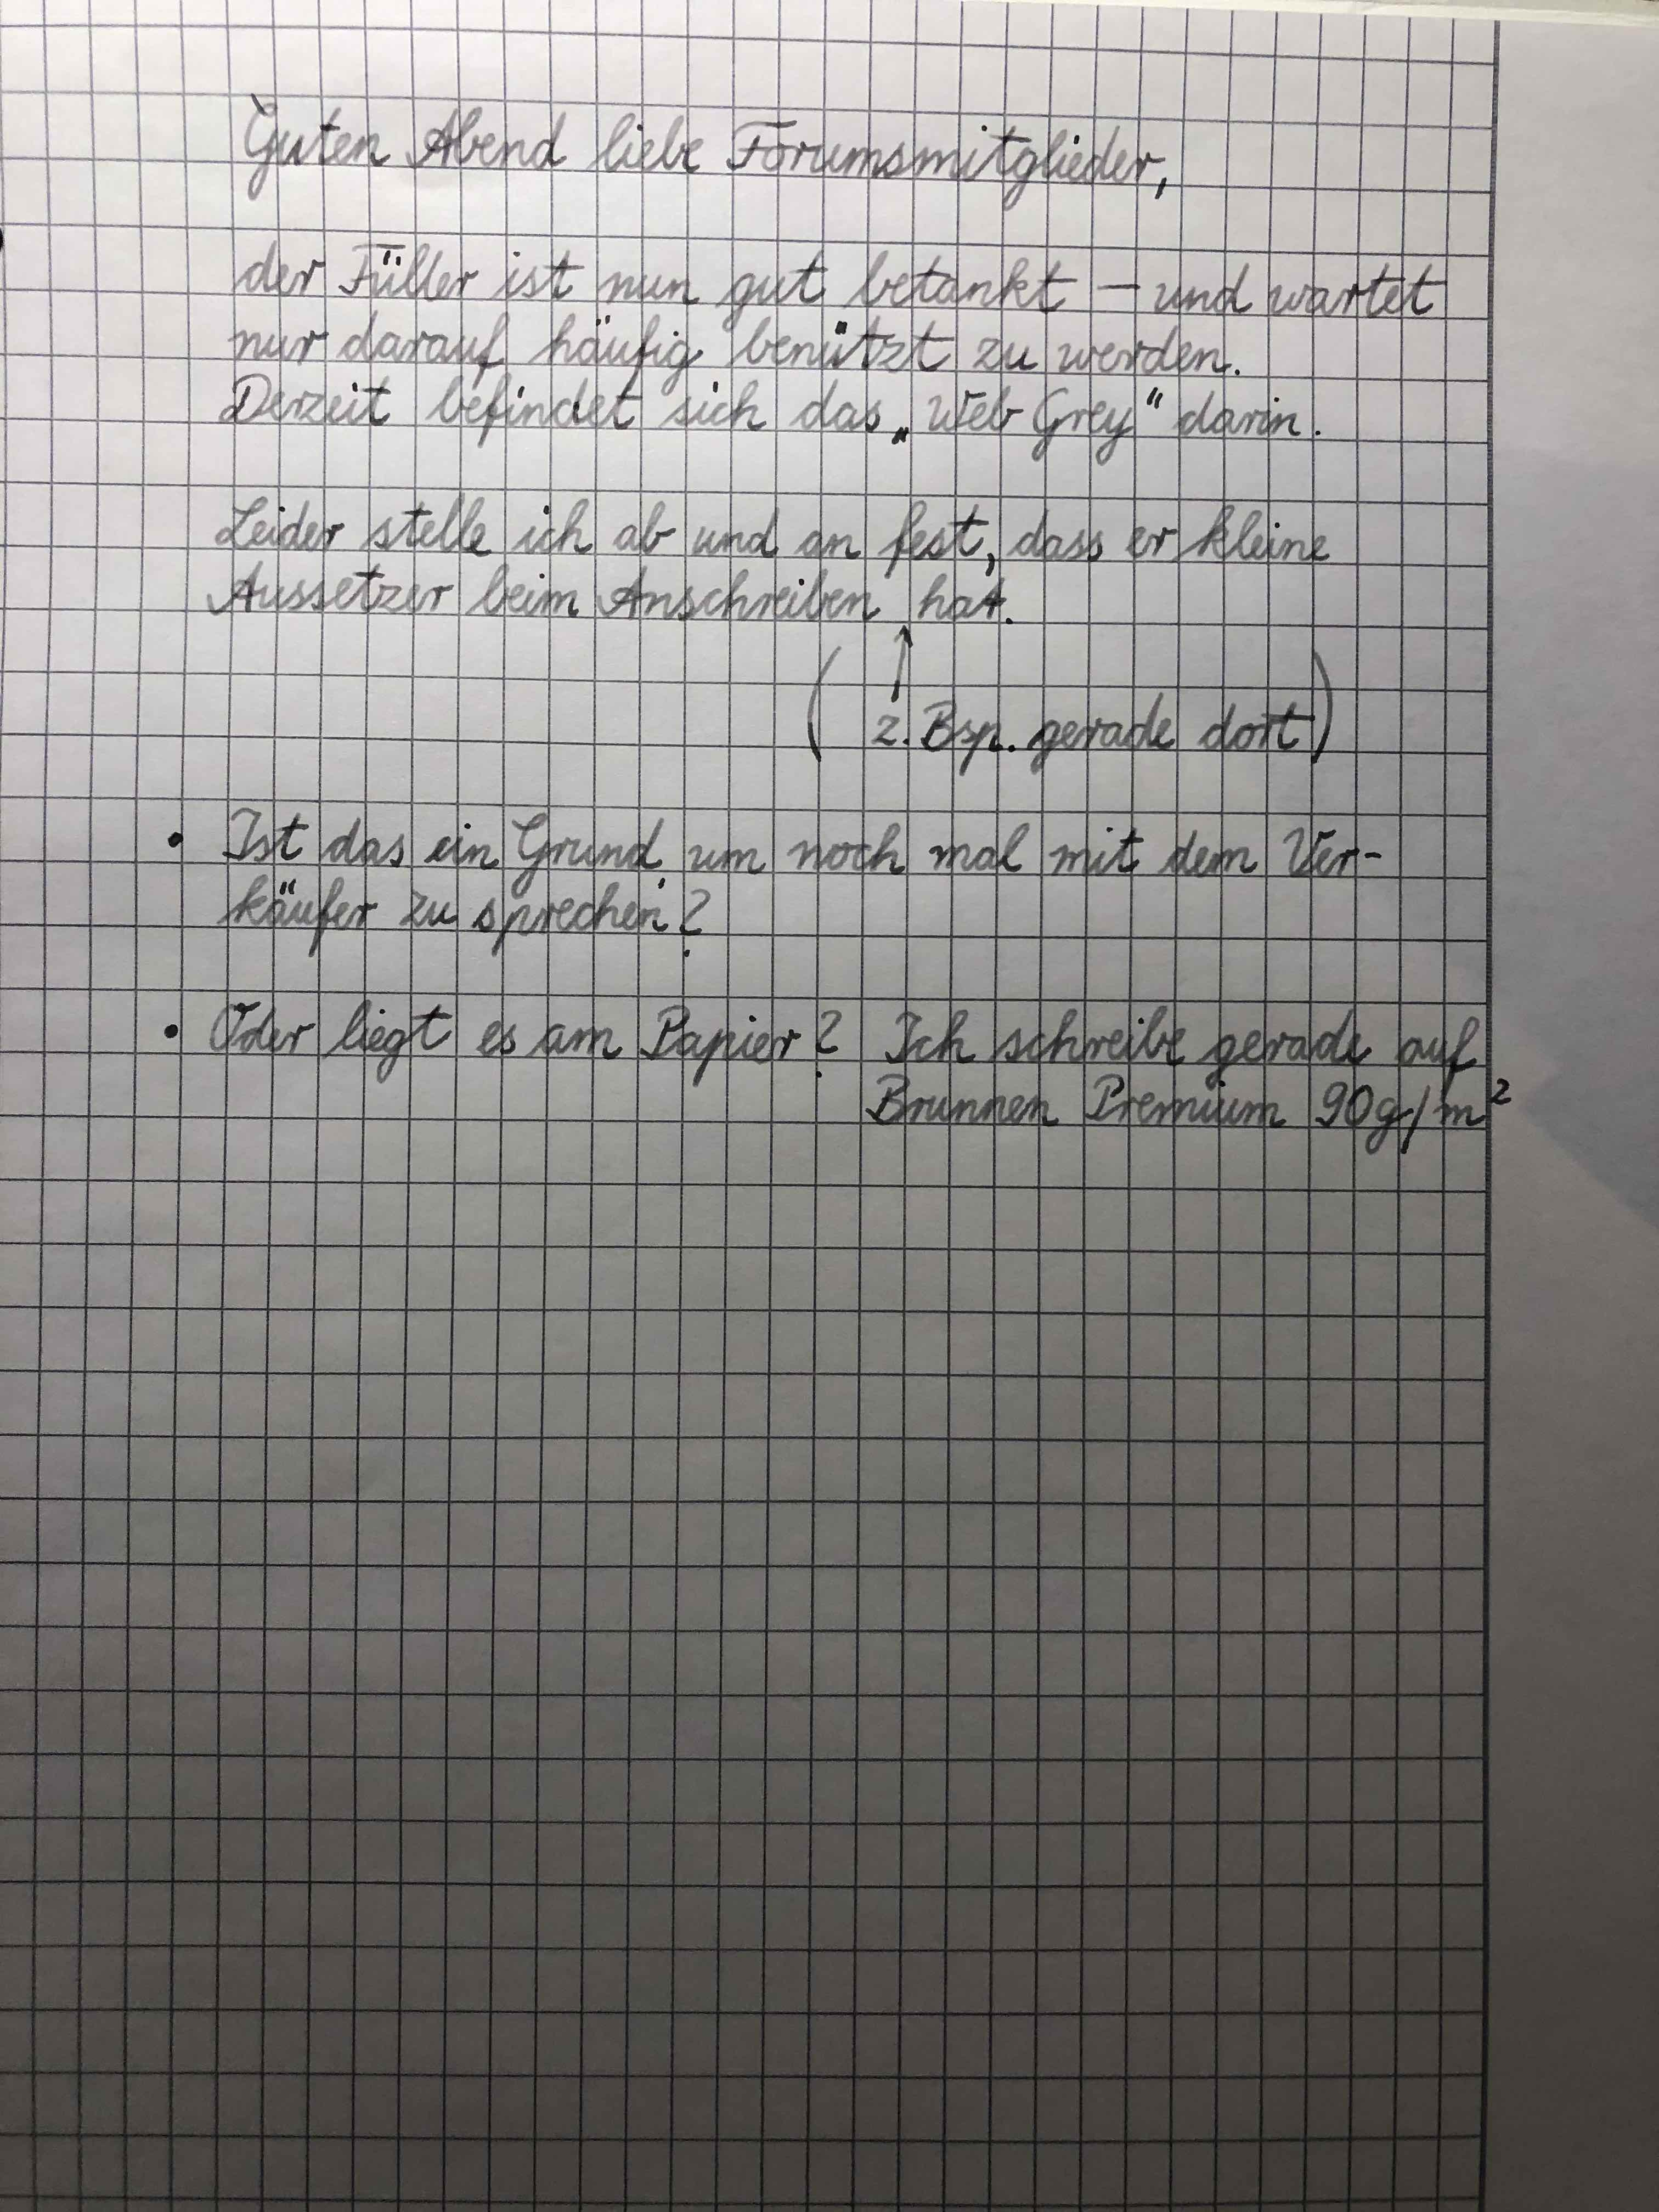 Guten Abend liebe Forumsmitglieder,
der Füller ist nun gut betankt – und wartet
nur darauf häufig benützt zu werden.
Derzeit befindet sich das „Web Grey“ darin.
Leider stelle ich ab und an fest, dass er kleine
Aussetzer beim Anschreiben hat.
(↑ z. Bsp. gerade dort)
• Ist das ein Grund um noch mal mit dem Ver-
käufer zu sprechen?
• Oder liegt es am Papier? Ich schreibe gerade auf
Brunnen Premium 90g/m²